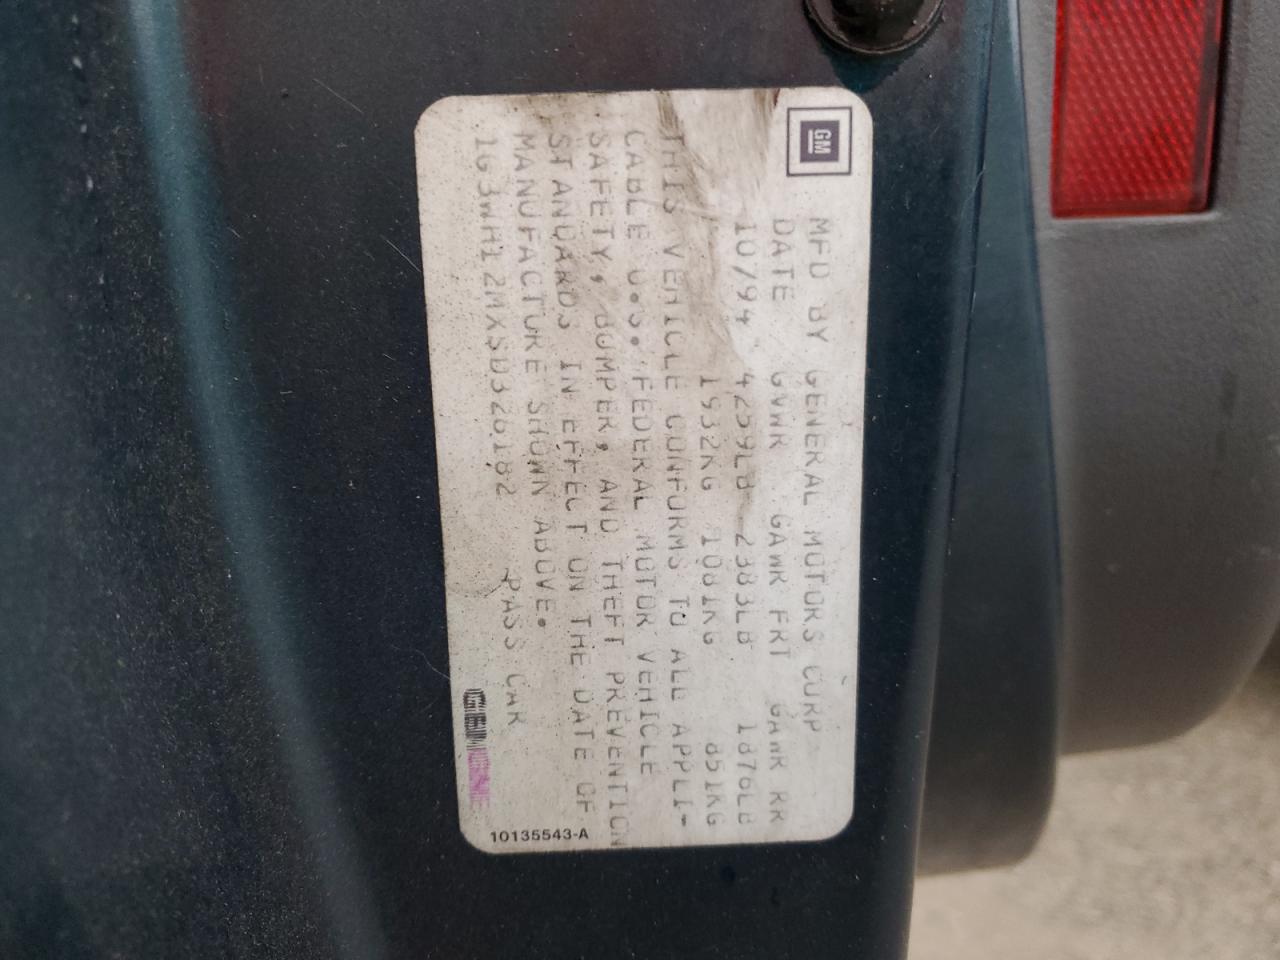 GM
MFD BY GENERAL MOTORS CORP
DATE GVWR GAWR FRT GAWR RR
10/94 4259LB 2383LB 1876LB
1932KG 1081KG 851KG
THIS VEHICLE CONFORMS TO ALL APPLI-
CABLE U.S. FEDERAL MOTOR VEHICLE
SAFETY, BUMPER, AND THEFT PREVENTION
STANDARDS IN EFFECT ON THE DATE OF
MANUFACTURE SHOWN ABOVE.
1G3WH12MXSD326182 PASS CAR
10135543-A